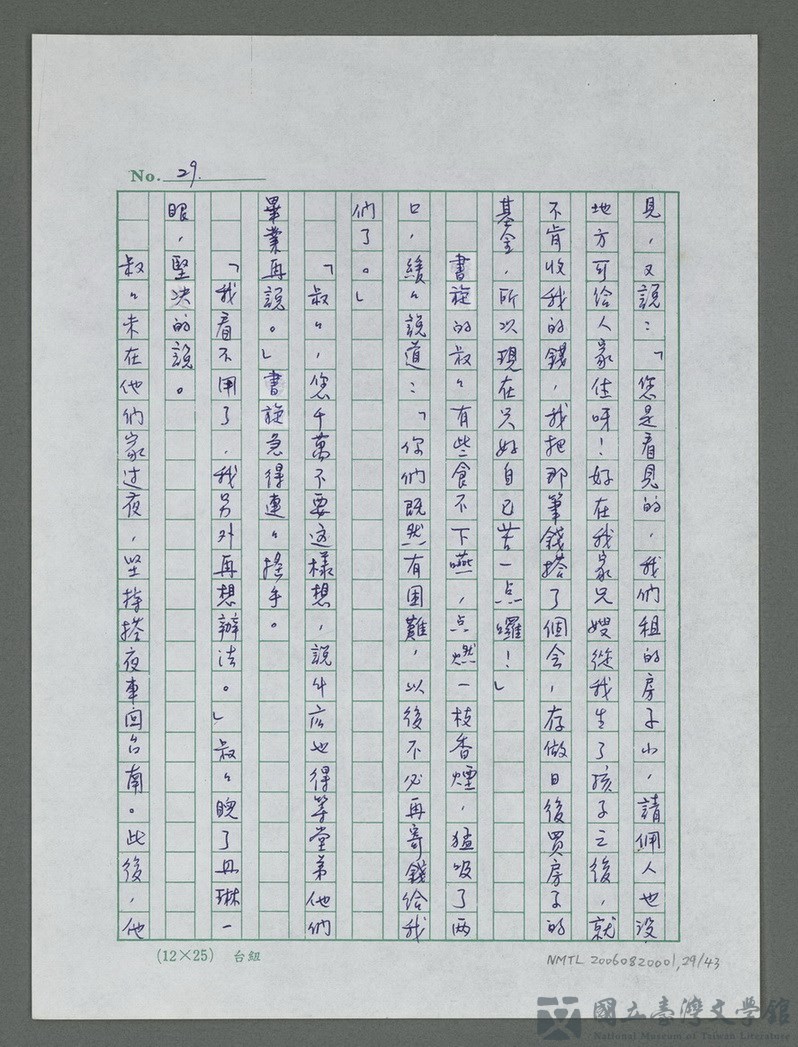 No. 29.
見，又說：「您是看見的，我們租的房子小，請佣人也沒
地方可給人家住呀！好在我家兄嫂從我生了孩子之後，就
不肯收我的錢，我把那筆錢搭了個会，存做日後買房子的
基金，所以現在只好自己苦一点囉！」
書旋的叔々有些食不下嚥，点燃一枝香煙，猛吸了兩
口，緩々說道：「你們既然有困難，以後不必再寄錢給我
們了。」
「叔々，您千萬不要这樣想，說什広也得等堂弟他們
畢業再說。」書旋急得連々搖手。
「我看不用了，我另外再想辦法。」叔々瞍了丹琳一
眼，堅决的說。
叔々未在他們家过夜，坚持搭夜車回台南。此後，他
(12×25) 台紐
NMTL 20060820001,29/43
國立臺灣文學館
National Museum of Taiwan Literature